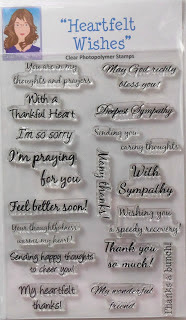 "Heartfelt
Wishes"
Clear Photopolymer Stamps
You are in my
thoughts and prayers
May God richly
bless you!
With a
Thankful Heart
Deepest Sympathy
I'm so sorry
Sending you
caring thoughts
I'm praying
for you
Many thanks!
With
Sympathy
Feel better soon!
Wishing you
a speedy recovery!
Your thoughtfulness
warms my heart!
Thank you
so much!
Thanks a bunch!
Sending happy thoughts
to cheer you!
My heartfelt
thanks!
My wonderful
friend